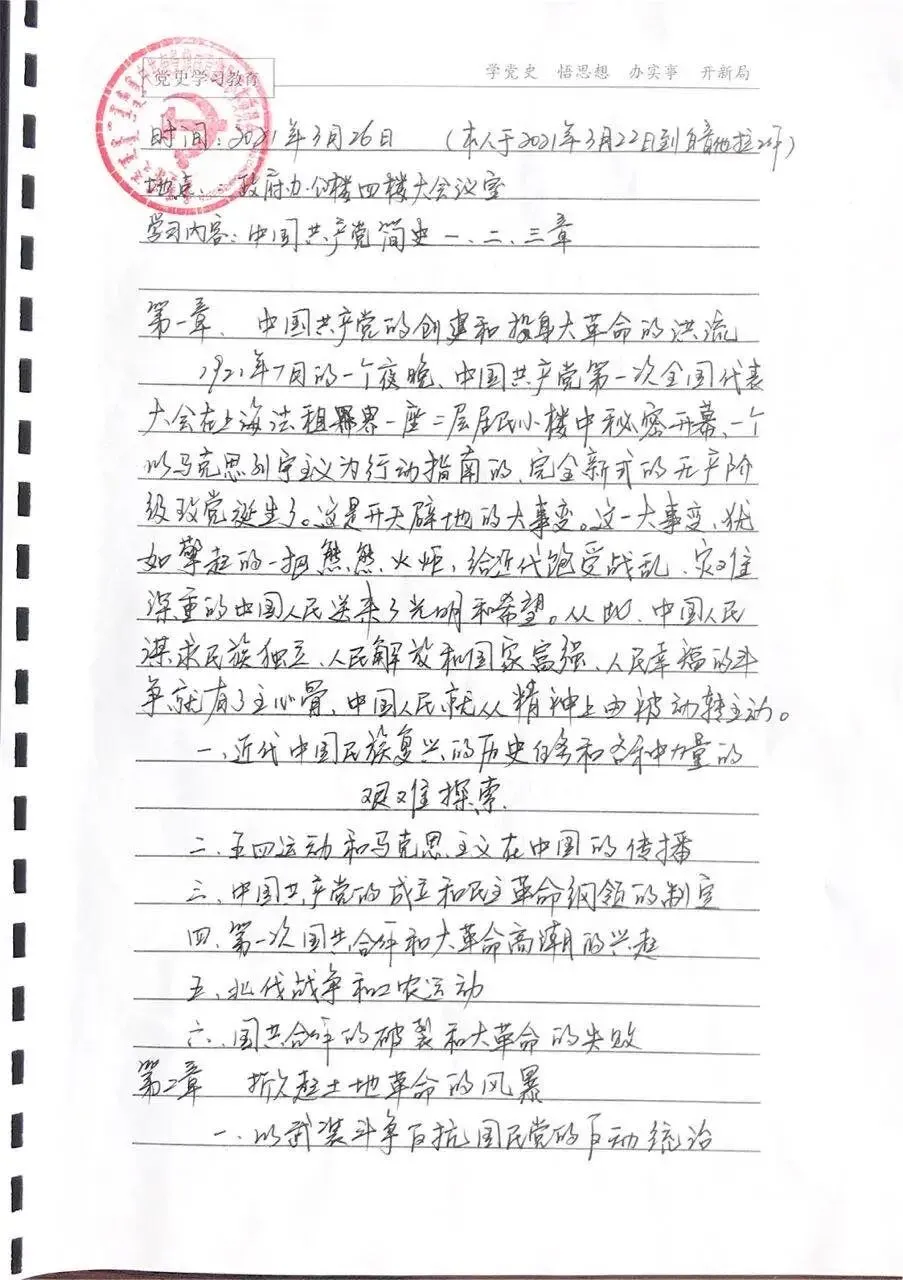 党史学习教育
学党史 悟思想 办实事 开新局
时间：2021年3月26日 （本人于2021年3月22日到白音他拉
地点：政府办公楼四楼大会议室
学习内容：中国共产党简史一、二、三章
第一章、中国共产党的创建和投身大革命的洪流
1921年7月的一个夜晚、中国共产党第一次全国代表
大会在上海法租界一座二层居民小楼中秘密开幕、一个
以马克思列宁主义为行动指南的、完全新式的无产阶
级政党诞生了。这是开天辟地的大事变。这一大事变、犹
如擎起的一把熊熊火炬、给近代饱受战乱、灾难
深重的中国人民送来了光明和希望。从此、中国人民
谋求民族独立、人民解放和国家富强、人民幸福的斗
争就有了主心骨、中国人民就从精神上由被动转主动。
一、近代中国民族复兴的历史任务和各种力量的
艰难探索
二、五四运动和马克思主义在中国的传播
三、中国共产党的成立和民主革命纲领的制定
四、第一次国共合作和大革命高潮的兴起
五、北伐战争和工农运动
六、国共合作的破裂和大革命的失败
第二章 掀起土地革命的风暴
一、以武装斗争反抗国民党的反动统治